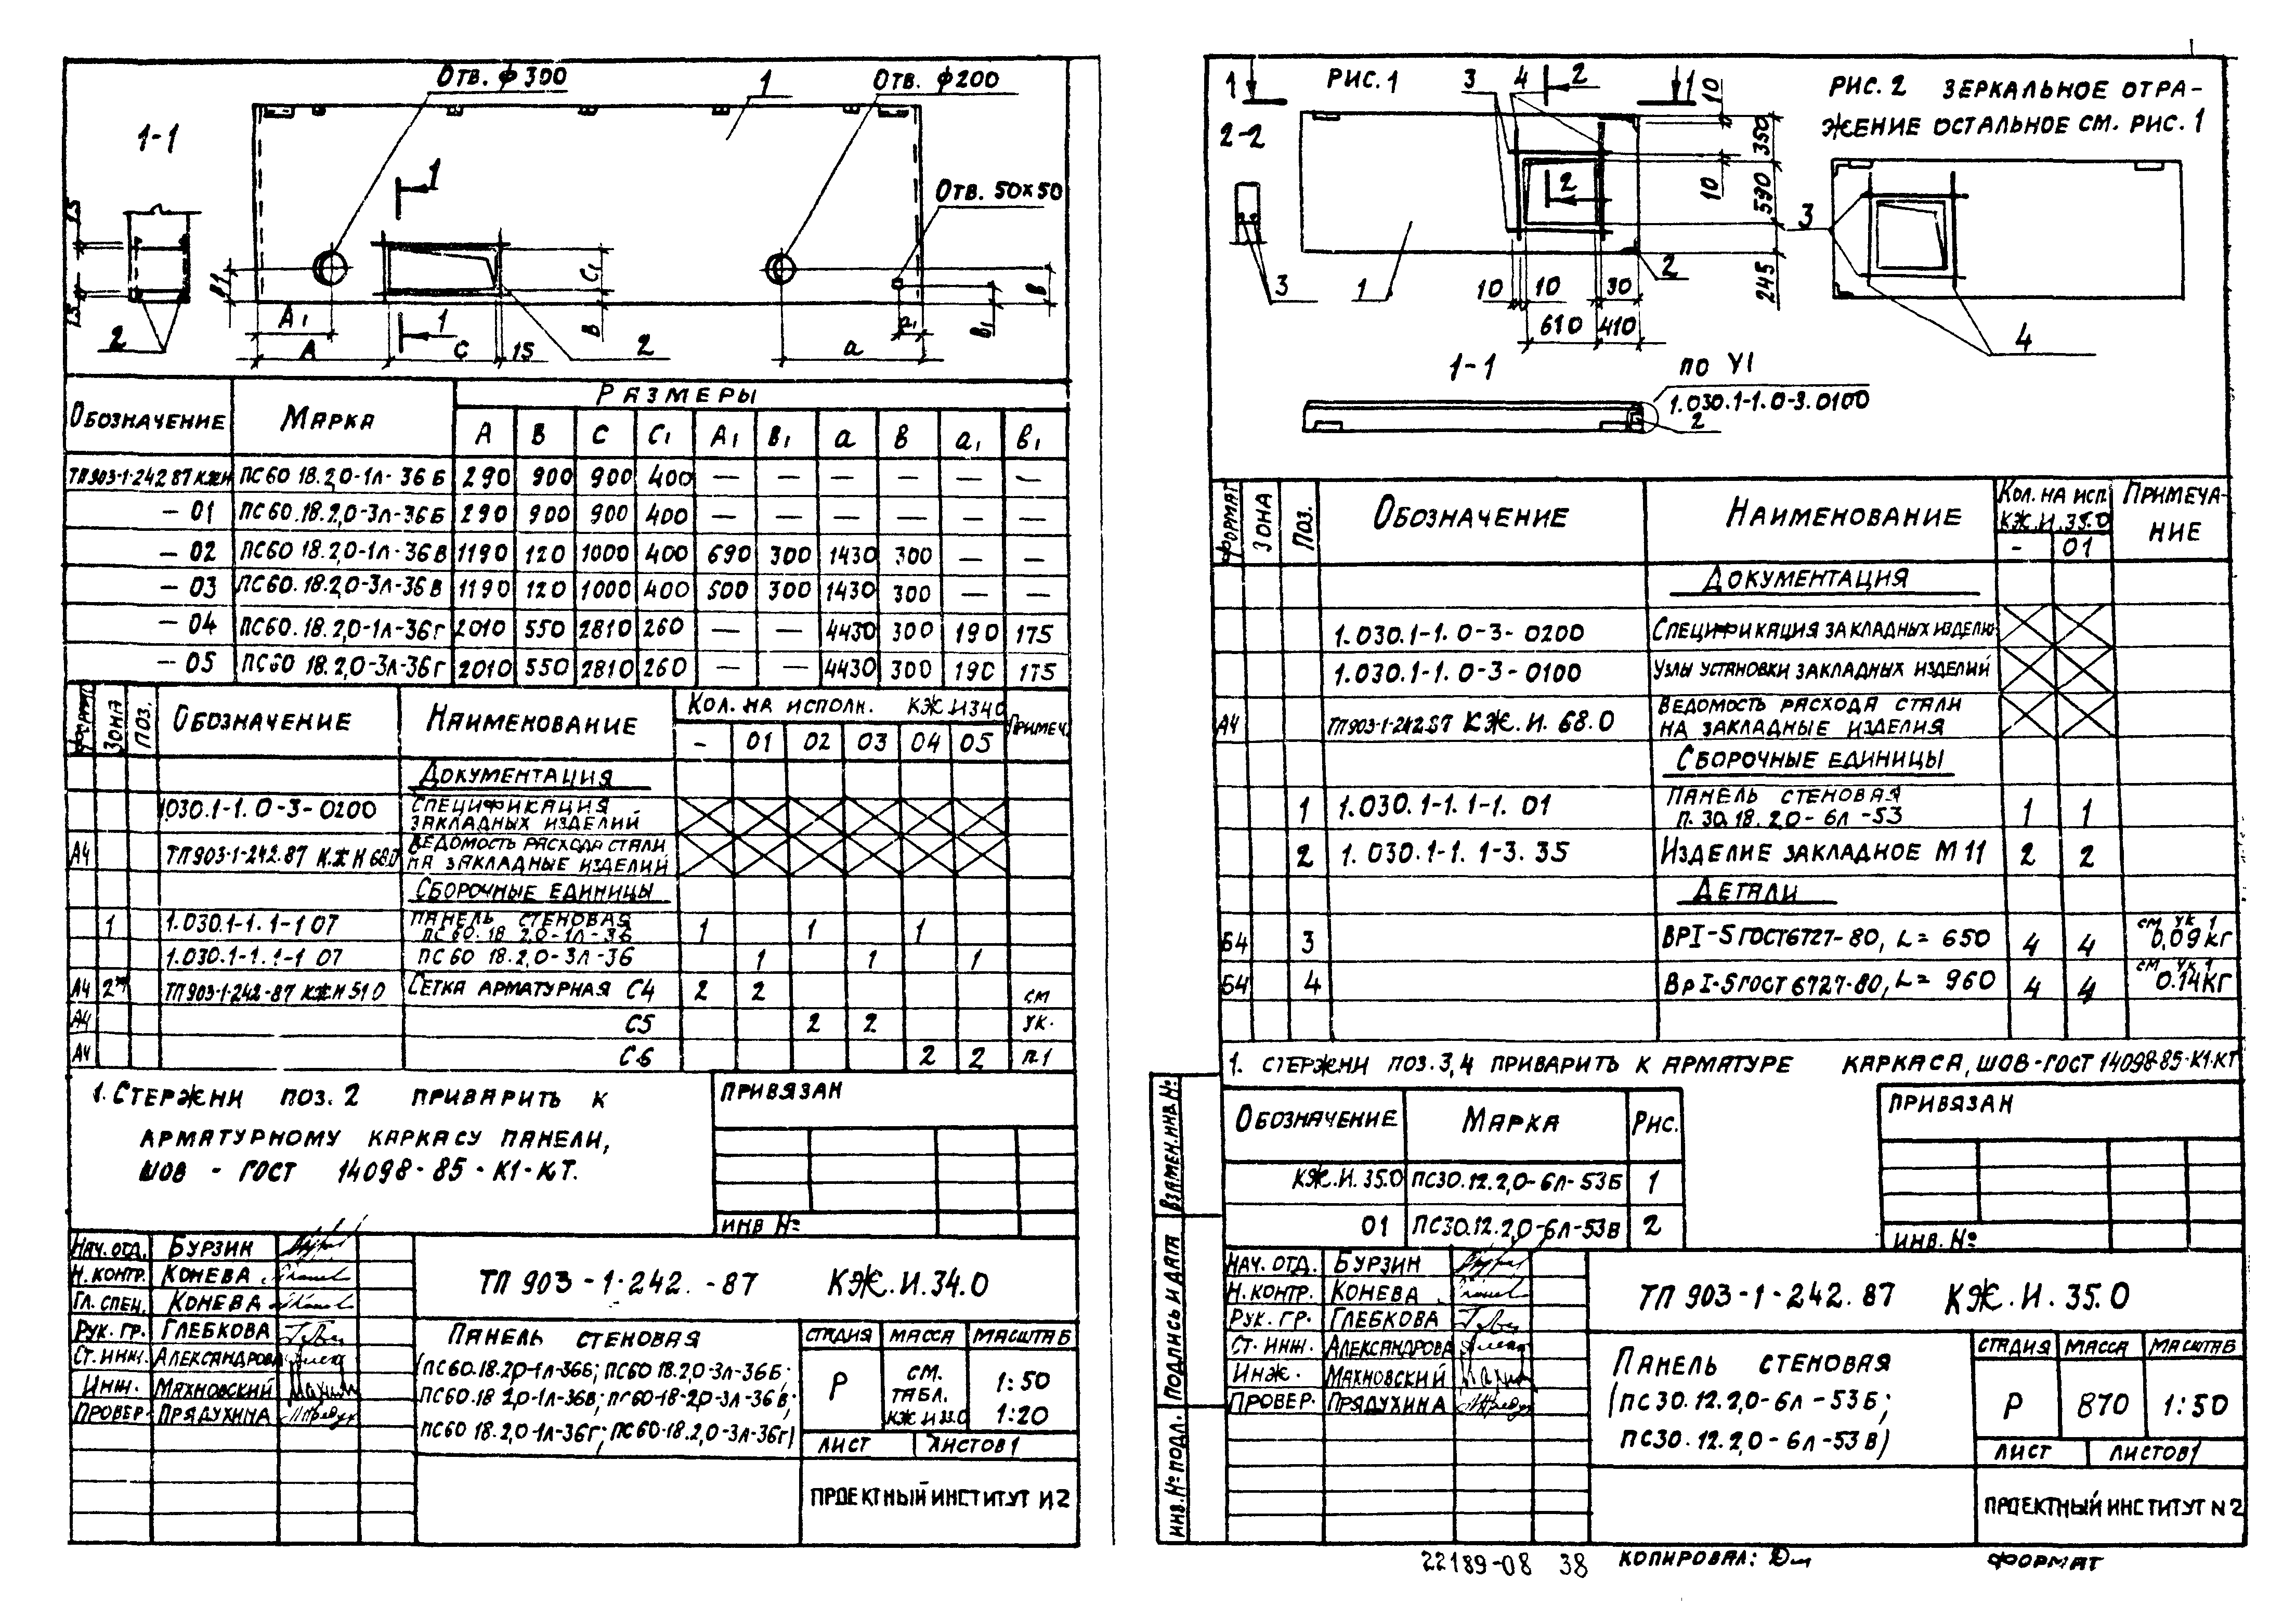 Отв. ф 300
1
Отв. ф200
1-1
1
Отв. 50×50
15
15
2
В1
А1
А
1
С
15
С1
В
2
а
а1
в1
в
Обозначение Марка Размеры
А В С С1 А1 В1 а в а1 в1
ТП903-1-242 87 КЖИ ПС60 18.2,0-1л-36 Б 290 900 900 400 — — — — — —
— 01 ПС60.18.2,0-3л-36Б 290 900 900 400 — — — — — —
— 02 ПС60 18.2,0-1л-36В 1190 120 1000 400 690 300 1430 300 — —
— 03 ПС60.18.2,0-3л-36В 1190 120 1000 400 500 300 1430 300 — —
— 04 ПС60.18.2,0-1л-36Г 2010 550 2810 260 — — 4430 300 190 175
— 05 ПС60 18.2,0-3л-36Г 2010 550 2810 260 — — 4430 300 190 175
Формат Зона Поз. Обозначение Наименование Кол. на исполн. КЖ И340 Примеч.
– 01 02 03 04 05
Документация
1.030.1-1.0-3-0200 Спецификация
закладных изделий
А4 ТП903-1-242.87 КЖ И 68.0 Ведомость расхода стали
на закладные изделия
Сборочные единицы
1 1.030.1-1.1-1 07 Панель стеновая
ПС60.18 2,0-1л-36 1 1 1
1.030.1-1.1-1 07 ПС60 18.2,0-3л-36 1 1 1
А4 2* ТП903-1-242-87 КЖИ 51 0 Сетка арматурная С4 2 2 см
А4 С5 2 2 ук.
А4 С6 2 2 п.1
1. Стержни поз. 2 приварить к
арматурному каркасу панели,
шов - ГОСТ 14098-85-К1-Кт.
Привязан
Инв №
Нач. отд. Бурзин
Н. контр. Конева
Гл. спец. Конева
Рук. гр. Глебкова
Ст. инж. Александрова
Инж. Махновский
Провер. Прядухина
ТП 903-1-242.-87 КЖ.И.34.0
Панель стеновая
(ПС60.18.2,0-1л-36Б; ПС60 18.2,0-3л-36Б;
ПС60.18 2,0-1л-36В; ПС60-18-2,0-3л-36В;
ПС60 18.2,0-1л-36Г; ПС60.18.2,0-3л-36Г)
Стадия Масса Масштаб
Р см.
табл.
КЖ И 33.0 1:50
1:20
Лист Листов 1
Проектный институт №2
1 Рис. 1 3 4 2 1 10
2-2
350
10
590
245
2
3
1
10 10 30
610 410
2
Рис. 2 Зеркальное отра-
жение остальное см. рис. 1
3
4
1-1
по У1
1.030.1-1.0-3.0100
2
Формат Зона Поз. Обозначение Наименование Кол. на исп.
КЖ.И.35.0 Примеча-
ние
- 01
Документация
1.030.1-1.0-3-0200 Спецификация закладных изделий
1.030.1-1.0-3-0100 Узлы установки закладных изделий
А4 ТП903-1-242.87 КЖ.И.68.0 Ведомость расхода стали
на закладные изделия
Сборочные единицы
1 1.030.1-1.1-1.01 Панель стеновая
П.30.18.2.0-6л-53 1 1
2 1.030.1-1.1-3.35 Изделие закладное М11 2 2
Детали
Б4 3 ВРI-5 ГОСТ6727-80, L=650 4 4 см ук 1
0,09 кг
Б4 4 ВрI-5 ГОСТ 6727-80, L= 960 4 4 см ук 1
0.14кг
1. Стержни поз.3,4 приварить к арматуре каркаса, шов-ГОСТ 14098-85-К1-Кт
Обозначение Марка Рис.
КЖ.И.35.0 ПС30.12.2,0-6л-53Б 1
01 ПС30.12.2,0-6л-53В 2
Привязан
Инв. №
Взамен.инв.№
Подпись и дата
Инв.№подл.
Нач. отд. Бурзин
Н. контр. Конева
Рук. гр. Глебкова
Ст. инж. Александрова
Инж. Махновский
Провер. Прядухина
ТП 903-1-242.87 КЖ.И.35.0
Панель стеновая
(ПС30.12.2,0-6л-53Б;
ПС30.12.2,0-6л-53В)
Стадия Масса Масштаб
Р 870 1:50
Лист Листов 1
Проектный институт №2
22189-08 38 Копировал: Формат